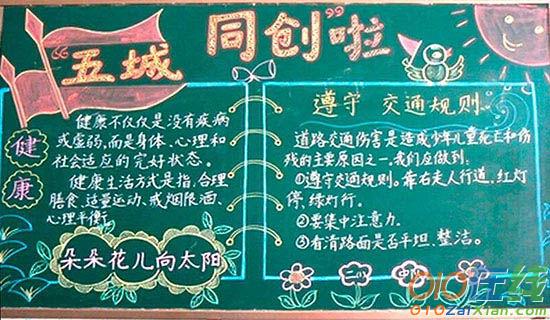 “五城同创”啦
健康
健康不仅仅是没有疾病
或虚弱,而是身体、心理和
社会适应的完好状态。
健康生活方式是指,合理
膳食、适量运动、戒烟限酒、
心理平衡
朵朵花儿向太阳
遵守 交通规则
道路交通伤害是造成少年儿童死亡和伤
残的主要原因之一,我们应做到:
①遵守交通规则。靠右走人行道,红灯
停,绿灯行。
②要集中注意力。
③看清路面是否平坦、整洁。
二(一)中
010在线
010zaixian.com